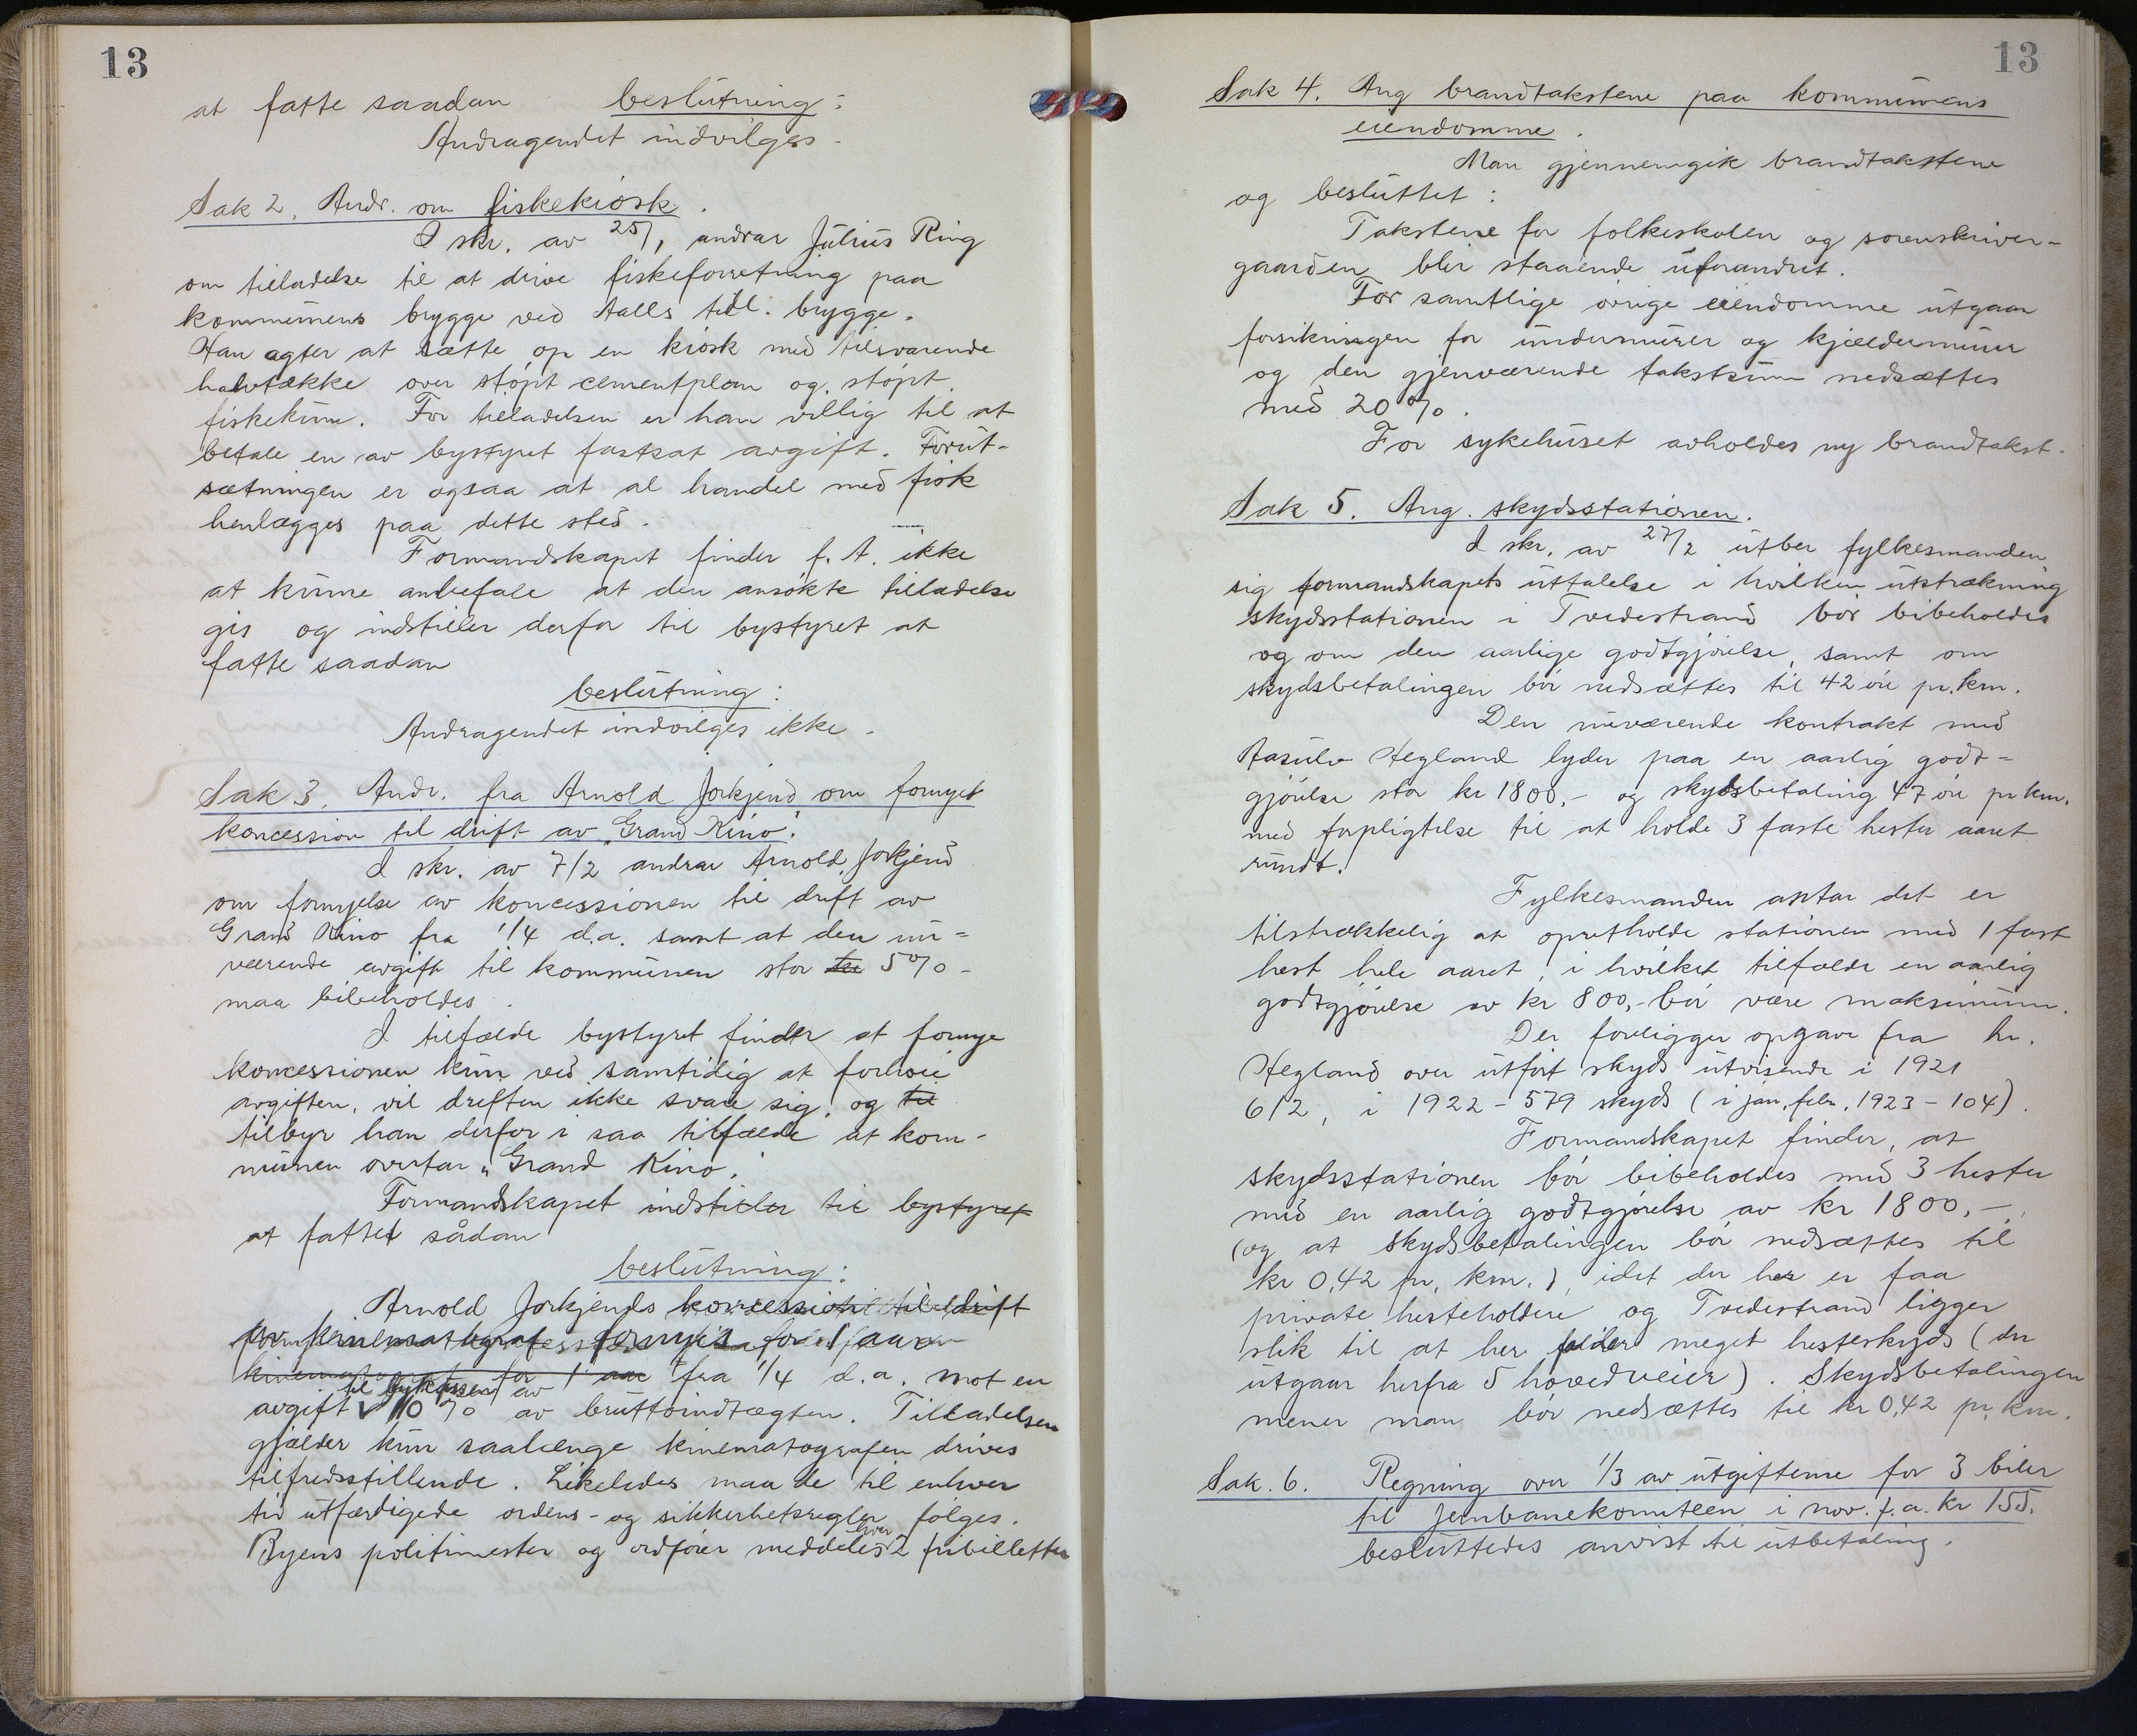 13
at fatte saadan beslutning:
Andragendet indvilges.
Sak 2. Andr. om fiskekiosk.
I skr. av 25/1 andrar Julius Ring
om tilladelse til at drive fiskeforretning paa
kommunens brygge ved Aalls tidl. brygge.
Han agter at sætte op en kiosk med tilsvarende
halvtække over støpt cementplan og støpt
fiskekum. For tilladelsen er han villig til at
betale en av bystyret fastsat avgift. Forut-
sætningen er ogsaa at al handel med fisk
henlægges paa dette sted.
Formandskapet finder f. t. ikke
at kunne anbefale at den ansøkte tilladelse
gis og indstiller derfor til bystyret at
fatte saadan
beslutning:
Andragendet indvilges ikke.
Sak 3. Andr. fra Arnold Jorkjend om fornyet
koncession til drift av "Grand Kino".
I skr. av 7/2 andrar Arnold Jorkjend
om fornyelse av koncessionen til drift av
Grand Kino fra 1/4 d.a. samt at den nu-
værende avgift til kommunen stor kr 5%
maa bibeholdes.
I tilfælde bystyret finder at fornye
koncessionen kun ved samtidig at forhøie
avgiften, vil driften ikke svare sig, og til
tilbyr han derfor i saa tilfælde at kom-
munen overtar "Grand Kino".
Formandskapet indstiller til bystyret
at fattet sådan
beslutning:
Arnold Jorkjends koncession til drift
av kinematograf fornyes for 1 aar
kinematograf for 1 aar fra 1/4 d.a. mot en
til bykassen av
avgift 10% av bruttoindtægten. Tilladelsen
gjælder kun saalænge kinematografen drives
tilfredsstillende. Likeledes maa de til enhver
tid utfærdigede ordens- og sikkerhetsregler følges.
hver
Byens politimester og ordfører meddeles 2 fribilletter
13
Sak 4. Ang brandtakstene paa kommunens
eiendomme.
Man gjennemgik brandtakstene
og besluttet:
Takstene for folkeskolen og sorenskriver-
gaarden blir staaende uforandret.
For samtlige øvrige eiendomme utgaar
forsikringen for undermurer og kjældermurer
og den gjenværende takstsum nedsættes
med 20%.
For sykehuset avholdes ny brandtakst.
Sak 5. Ang. skydsstationen.
I skr. av 27/2 utber fylkesmanden
sig formandskapets uttalelse i hvilken utstrækning
skydsstationen i Tvedestrand bør bibeholdes
og om den aarlige godtgjørelse, samt om
skydsbetalingen bør nedsættes til 42 øre pr. km.
Den nuværende kontrakt med
Aasulv Hegland lyder paa en aarlig godt-
gjørelse stor kr 1800,- og skydsbetaling 47 øre pr km.
med forpligtelse til at holde 3 faste hester aaret
rundt.
Fylkesmanden antar det er
tilstrækkelig at opretholde stationen med 1 fast
hest hele aaret, i hvilket tilfælde en aarlig
godtgjørelse av kr 800,- bør være maksimum.
Der foreligger opgave fra hr.
Hegland over utført skyds utvisende i 1921
612, i 1922 - 579 skyds (i jan. febr. 1923 - 104).
Formandskapet finder, at
skydsstationen bør bibeholdes med 3 hester
med en aarlig godtgjørelse av kr 1800,-
(og at skydsbetalingen bør nedsættes til
kr 0,42 pr. km.) idet der her er faa
private hesteholdere og Tvedestrand ligger
slik til at her falder meget hesteskyds (der
utgaar herfra 5 hovedveier). Skydsbetalingen
mener man bør nedsættes til kr 0,42 pr. km.
Sak. 6. Regning over 1/3 av utgifterne for 3 biler
til Jernbanekomiteen i nov. f.a. kr 155.
besluttedes anvist til utbetaling.